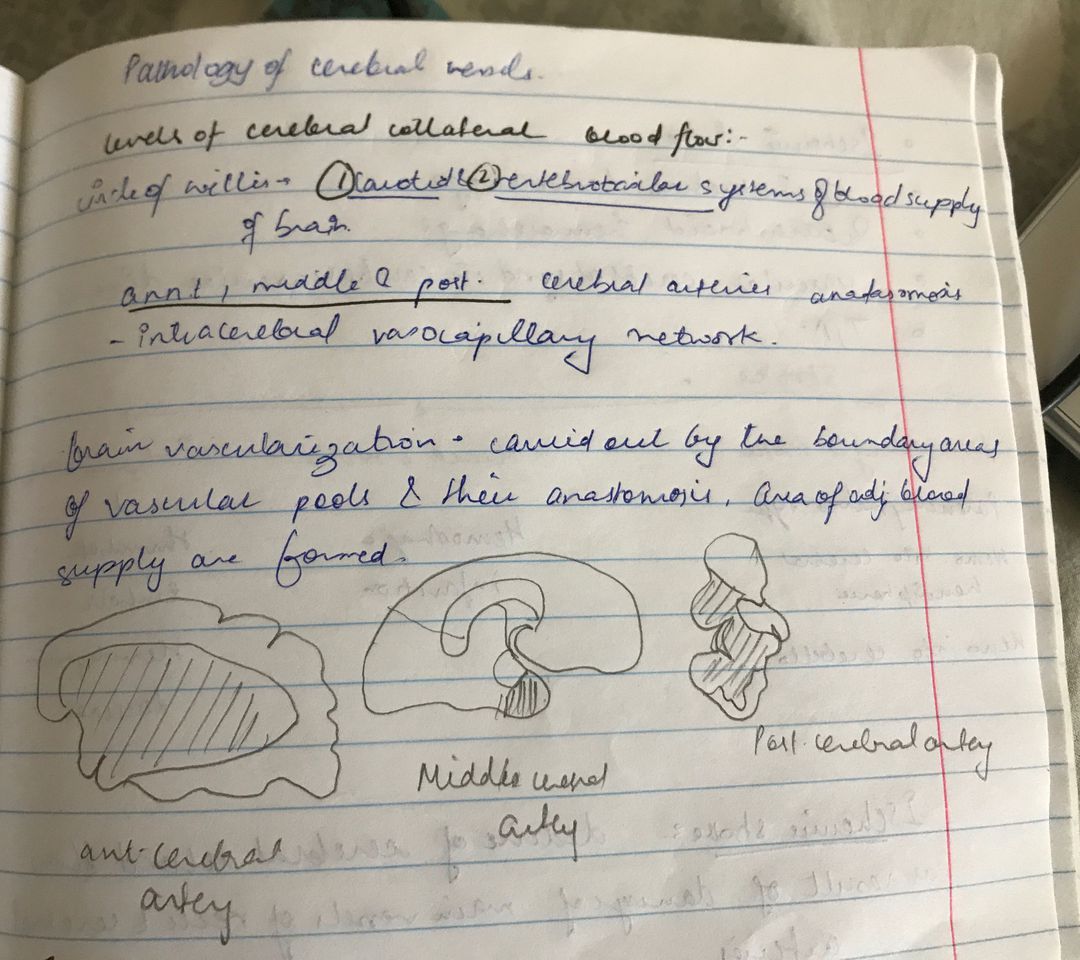 Pathology of cerebral vessels.
levels of cerebral collateral blood flow:-
circle of willis → ① carotid & ② vertebrobasilar systems of blood supply
of brain.
annt, middle & post. cerebral arteries anastasomosis
- intracerebral vasocapillary network.
brain vascularization - carried out by the boundary areas
of vascular pools & their anastomosis. Area of adj blood
supply are formed.
ant. cerebral
artery
Middle cerebral
artery
Post. cerebral artery